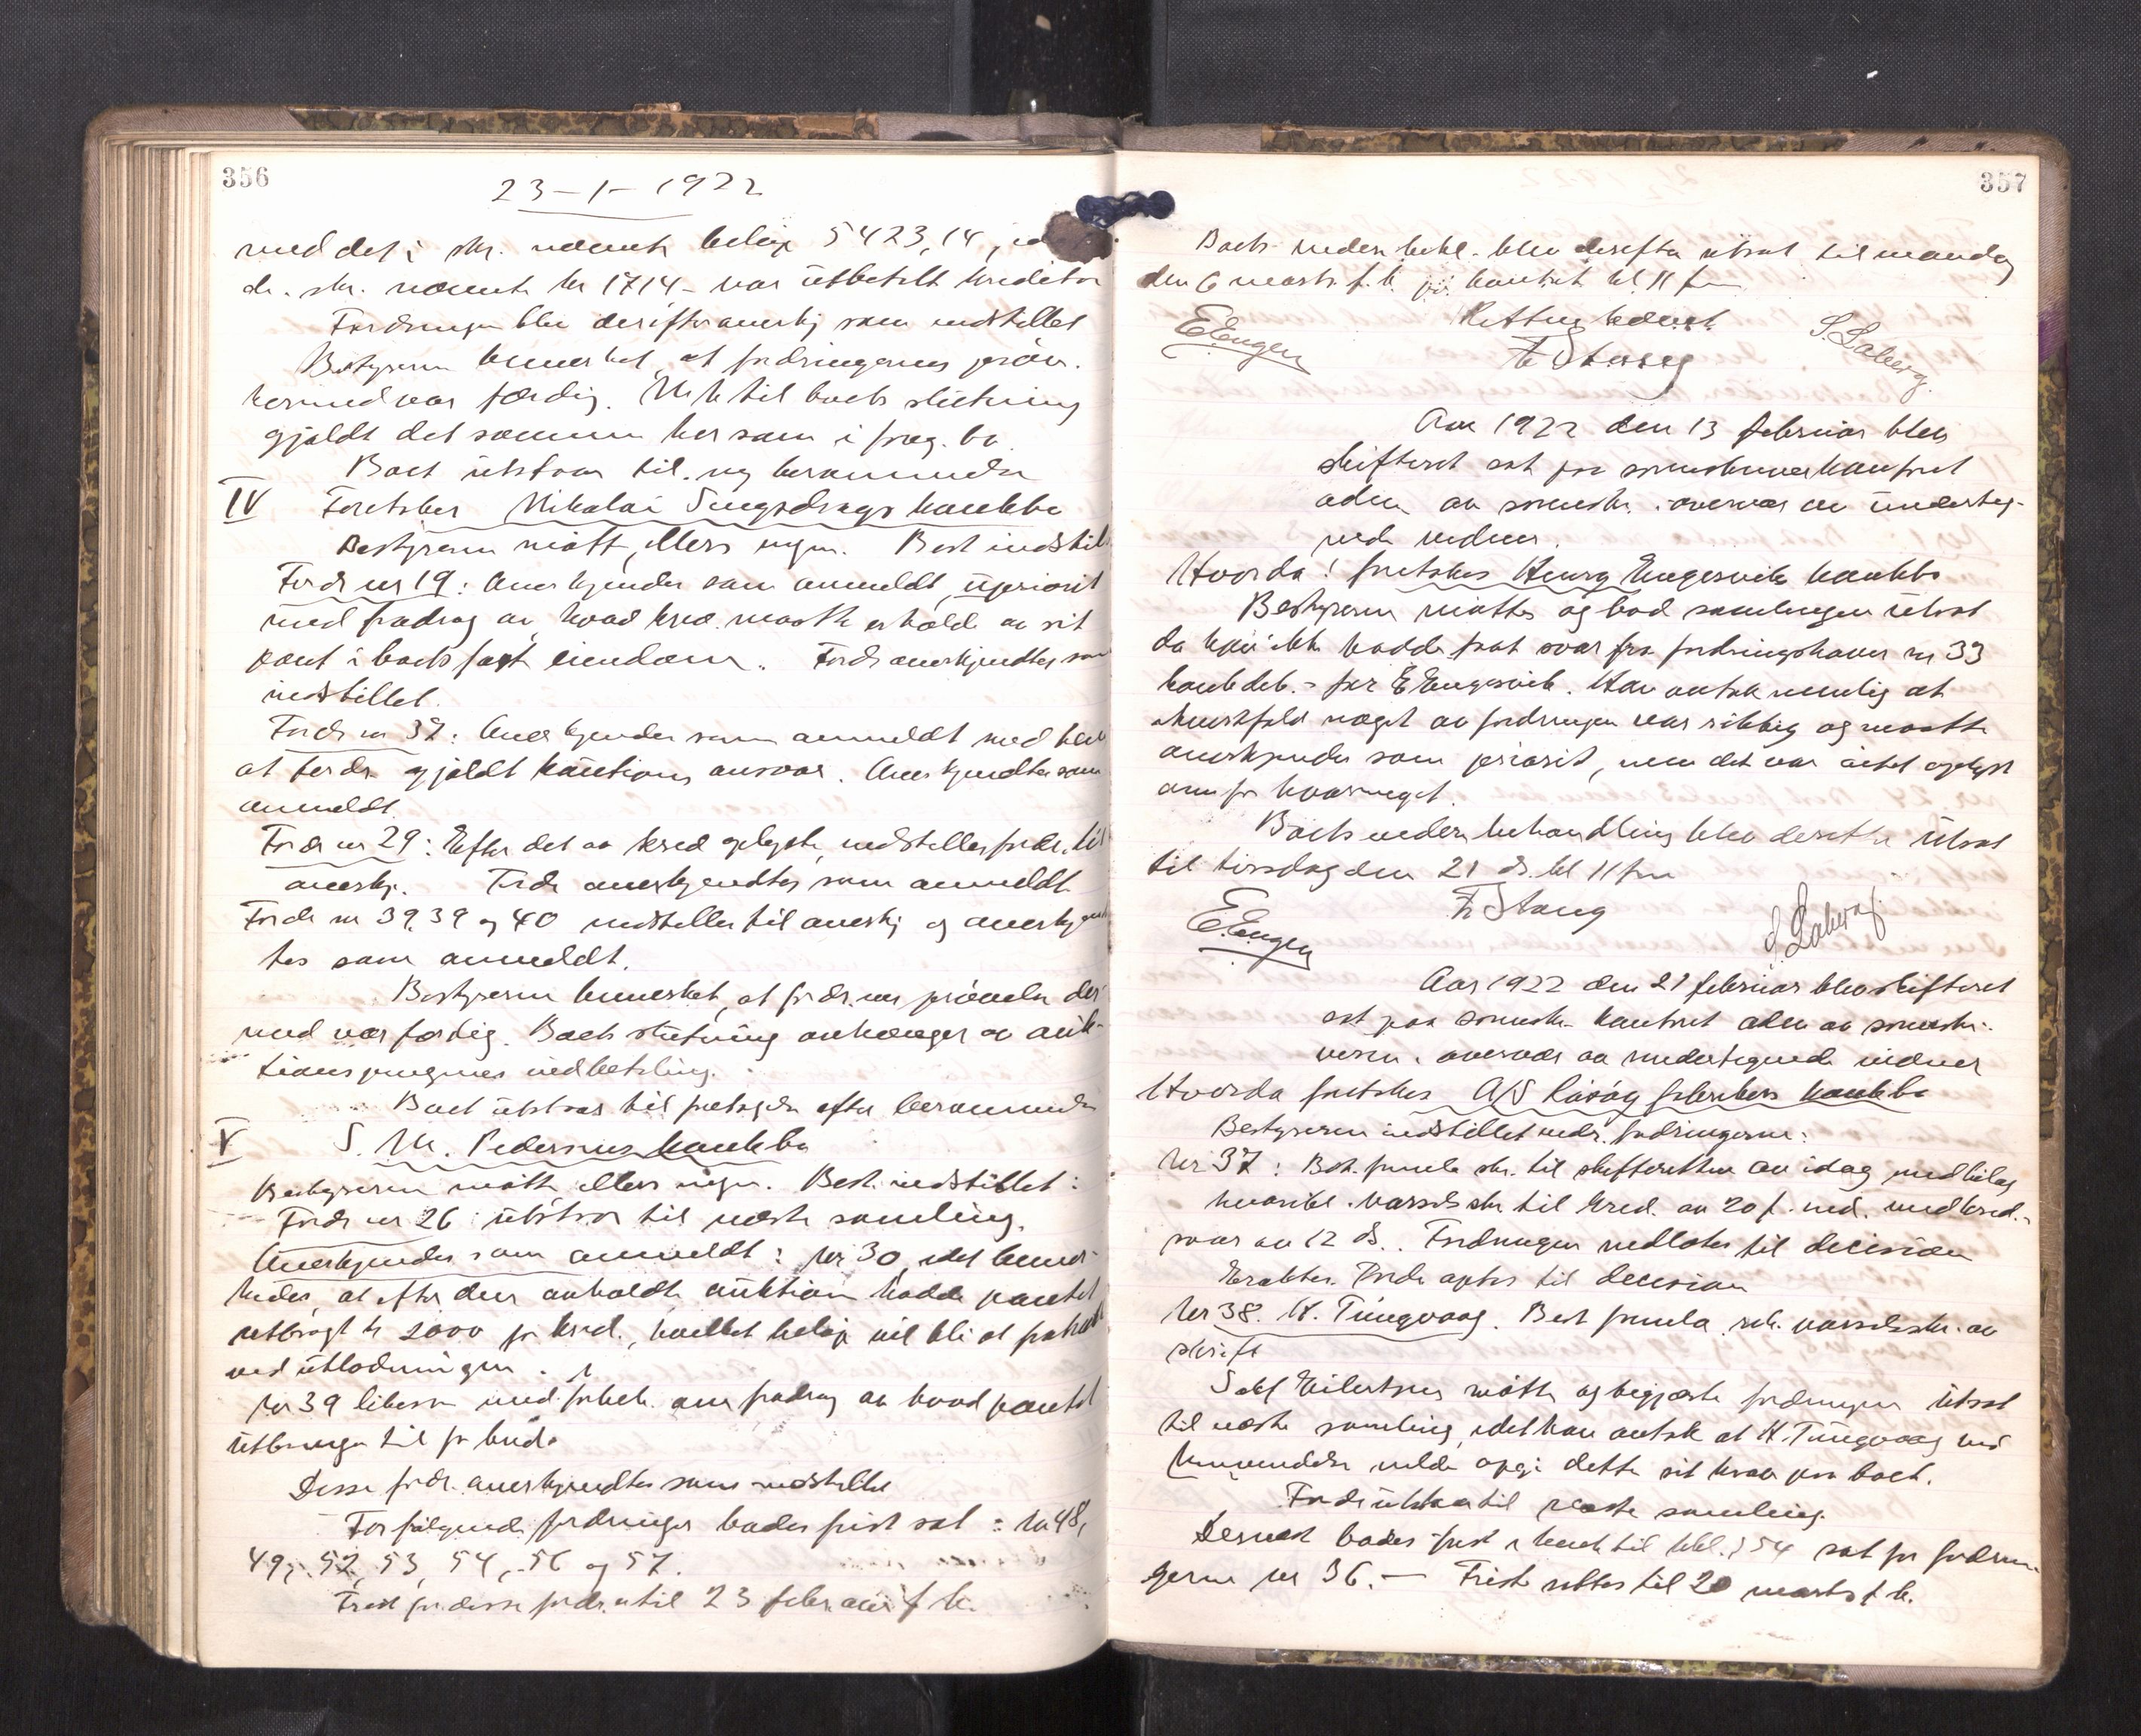 356
23-1-1922
med det i skr. nævnte beløp 5423,14,
de. skr. nævnte kr 1714 - var utbetalt kreditor
Fordringen blev derefter anerkj som indstillet
Bestyreren bemerket, at fordringernes prøv.
hermed var færdig. Mh til boets slutning
gjaldt det samme her som i foreg. bo.
Boet utstaar til ny berammelse
IV Foretokes Nikolai Tungodraags konkbo
Bestyreren møtt, ellers ingen. Best indstil
Fordr nr 19: Anerkjendes som anmeldt, uprioit
med fradrag av hvad kred. maatte erholde av sit
pant i boets fast eiendom. Fordr anerkjendtes som
indstillet.
Fordr nr 37: Anerkjendes som anmeldt med bem
at fordr gjaldt kautions ansvar. Anerkjendtes som
anmeldt.
Fordr nr 29: Efter det av kred oplyste, indstilles fordr. til
anerkj. Fordr anerkjendtes som anmeldt
Fordr nr 39, 39 og 40 indstilles til anerkj og anerkjend
tes som anmeldt.
Bestyreren bemerket, at fordr.nes prøvelse der
med var færdig. Boets slutning avhænger av auk-
tionspengenes indbetaling.
Boet utstaar til foretagelse efter berammelse
V S. M. Pedersens konkbo
Bestyreren møtt, ellers ingen. Best. indstillet:
Fordr nr 26 utstaar til næste samling.
Anerkjendes som anmeldt: nr 30, idet bemer-
kedes, at efter den avholdte auktion hadde pantet
utbragt kr 2000 for kred., hvilket beløp vil bli at fratræk
ved utlodningen.
Nr 39 likesaa med forbeh. om fradrag av hvad pantet
utbringes til for kred.
Disse fordr. anerkjendtes som indstillet
For følgende fordringer bades frist sat: nr 48,
49, 52, 53, 54, 56 og 57.
Frist for disse fordr. til 23 februar f k.
357
Boets videre behl. blev derefter utsat til mandag
den 6 marts f. k. på kontoret kl. 11 fm
Retten hævet
E Engen
F Stang
S. Laberg.
Aar 1922 den 13 februar blev
skifteret sat paa sorenskriverkontoret
adm. av sorenskr. i overvær av underteg-
nede vidner.
Hvorda! foretokes Henry Engesviks konkbo
Bestyreren møtte og bad samlingen utsat
da han ikke hadde faat svar fra fordringshaver nr 33
konk deb.s far E Engesvik. Han antok nemlig at
i hvertfald noget av fordringen var riktig og maatte
anerkjendes som priorit, men det var intet oplyst
om for hvormeget.
Boets videre behandling blev derefter utsat
til tirsdag den 21 ds. kl 11 fm
F Stang
E. Engen
S. Laberg.
Aar 1922 den 21 februar blev skifteret
sat paa sorenskr. kontoret adm av sorenskri-
veren i overvær av undertegnede vidner
Hvorda foretokes A/S Råvåg fabrikers konkbo
Bestyreren indstillet vedr. fordringerne:
Nr 37: Best. fremla skr. til skifteretten av idag med bilag
hvoriblt. varsels skr til kred. av 20 f. md. med kred.s
svar av 12 ds. Fordringen nedlotes til decision
Erakter. Fordr optas til decision
Nr 38. H. Tungvaag. Best fremla rek. varselsskr. av
skrift
Sakf Eilertsen møtte og begjærte fordringen utsat
til næste samling, idet han antok at H. Tungvaag ved
henvendelse vilde opgi dette sit krav paa boet.
Fordr utstaar til næste samling.
Dernæst bades frist i henh til kkl. § 54 sat for fordrin-
gerne nr 36. — Frist sattes til 20 marts f. k.